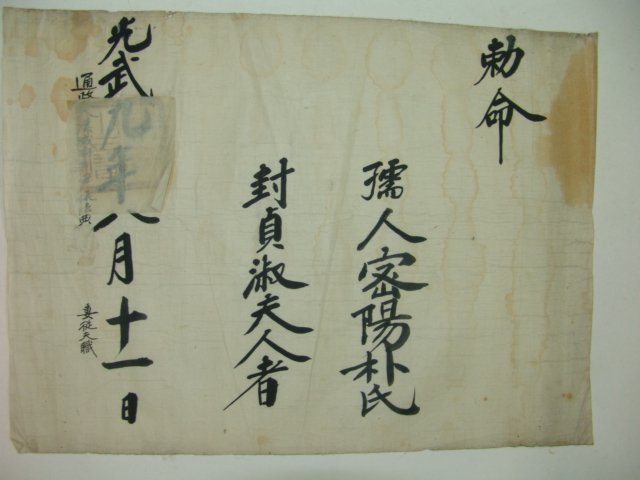 勅命
孺人密陽朴氏
封貞淑夫人者
光武九年八月十一日
通政
妻從夫職